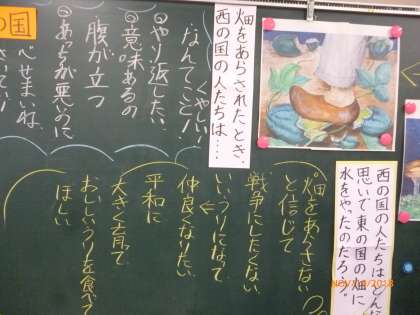 の国
畑をあらされたとき、
西の国の人たちは…
くやしい!
なんてこと!
やり返したい
意味あるの
腹が立つ
あっちが悪いのに
西の国の人たちはどんな
思いで東の国の畑に
水をやったのだろう。
畑をあらさない
と信じて
戦争にしたくない
いいうりになって
仲良くなりたい
平和に
大きく育て
おいしいうりを食べて
ほしい